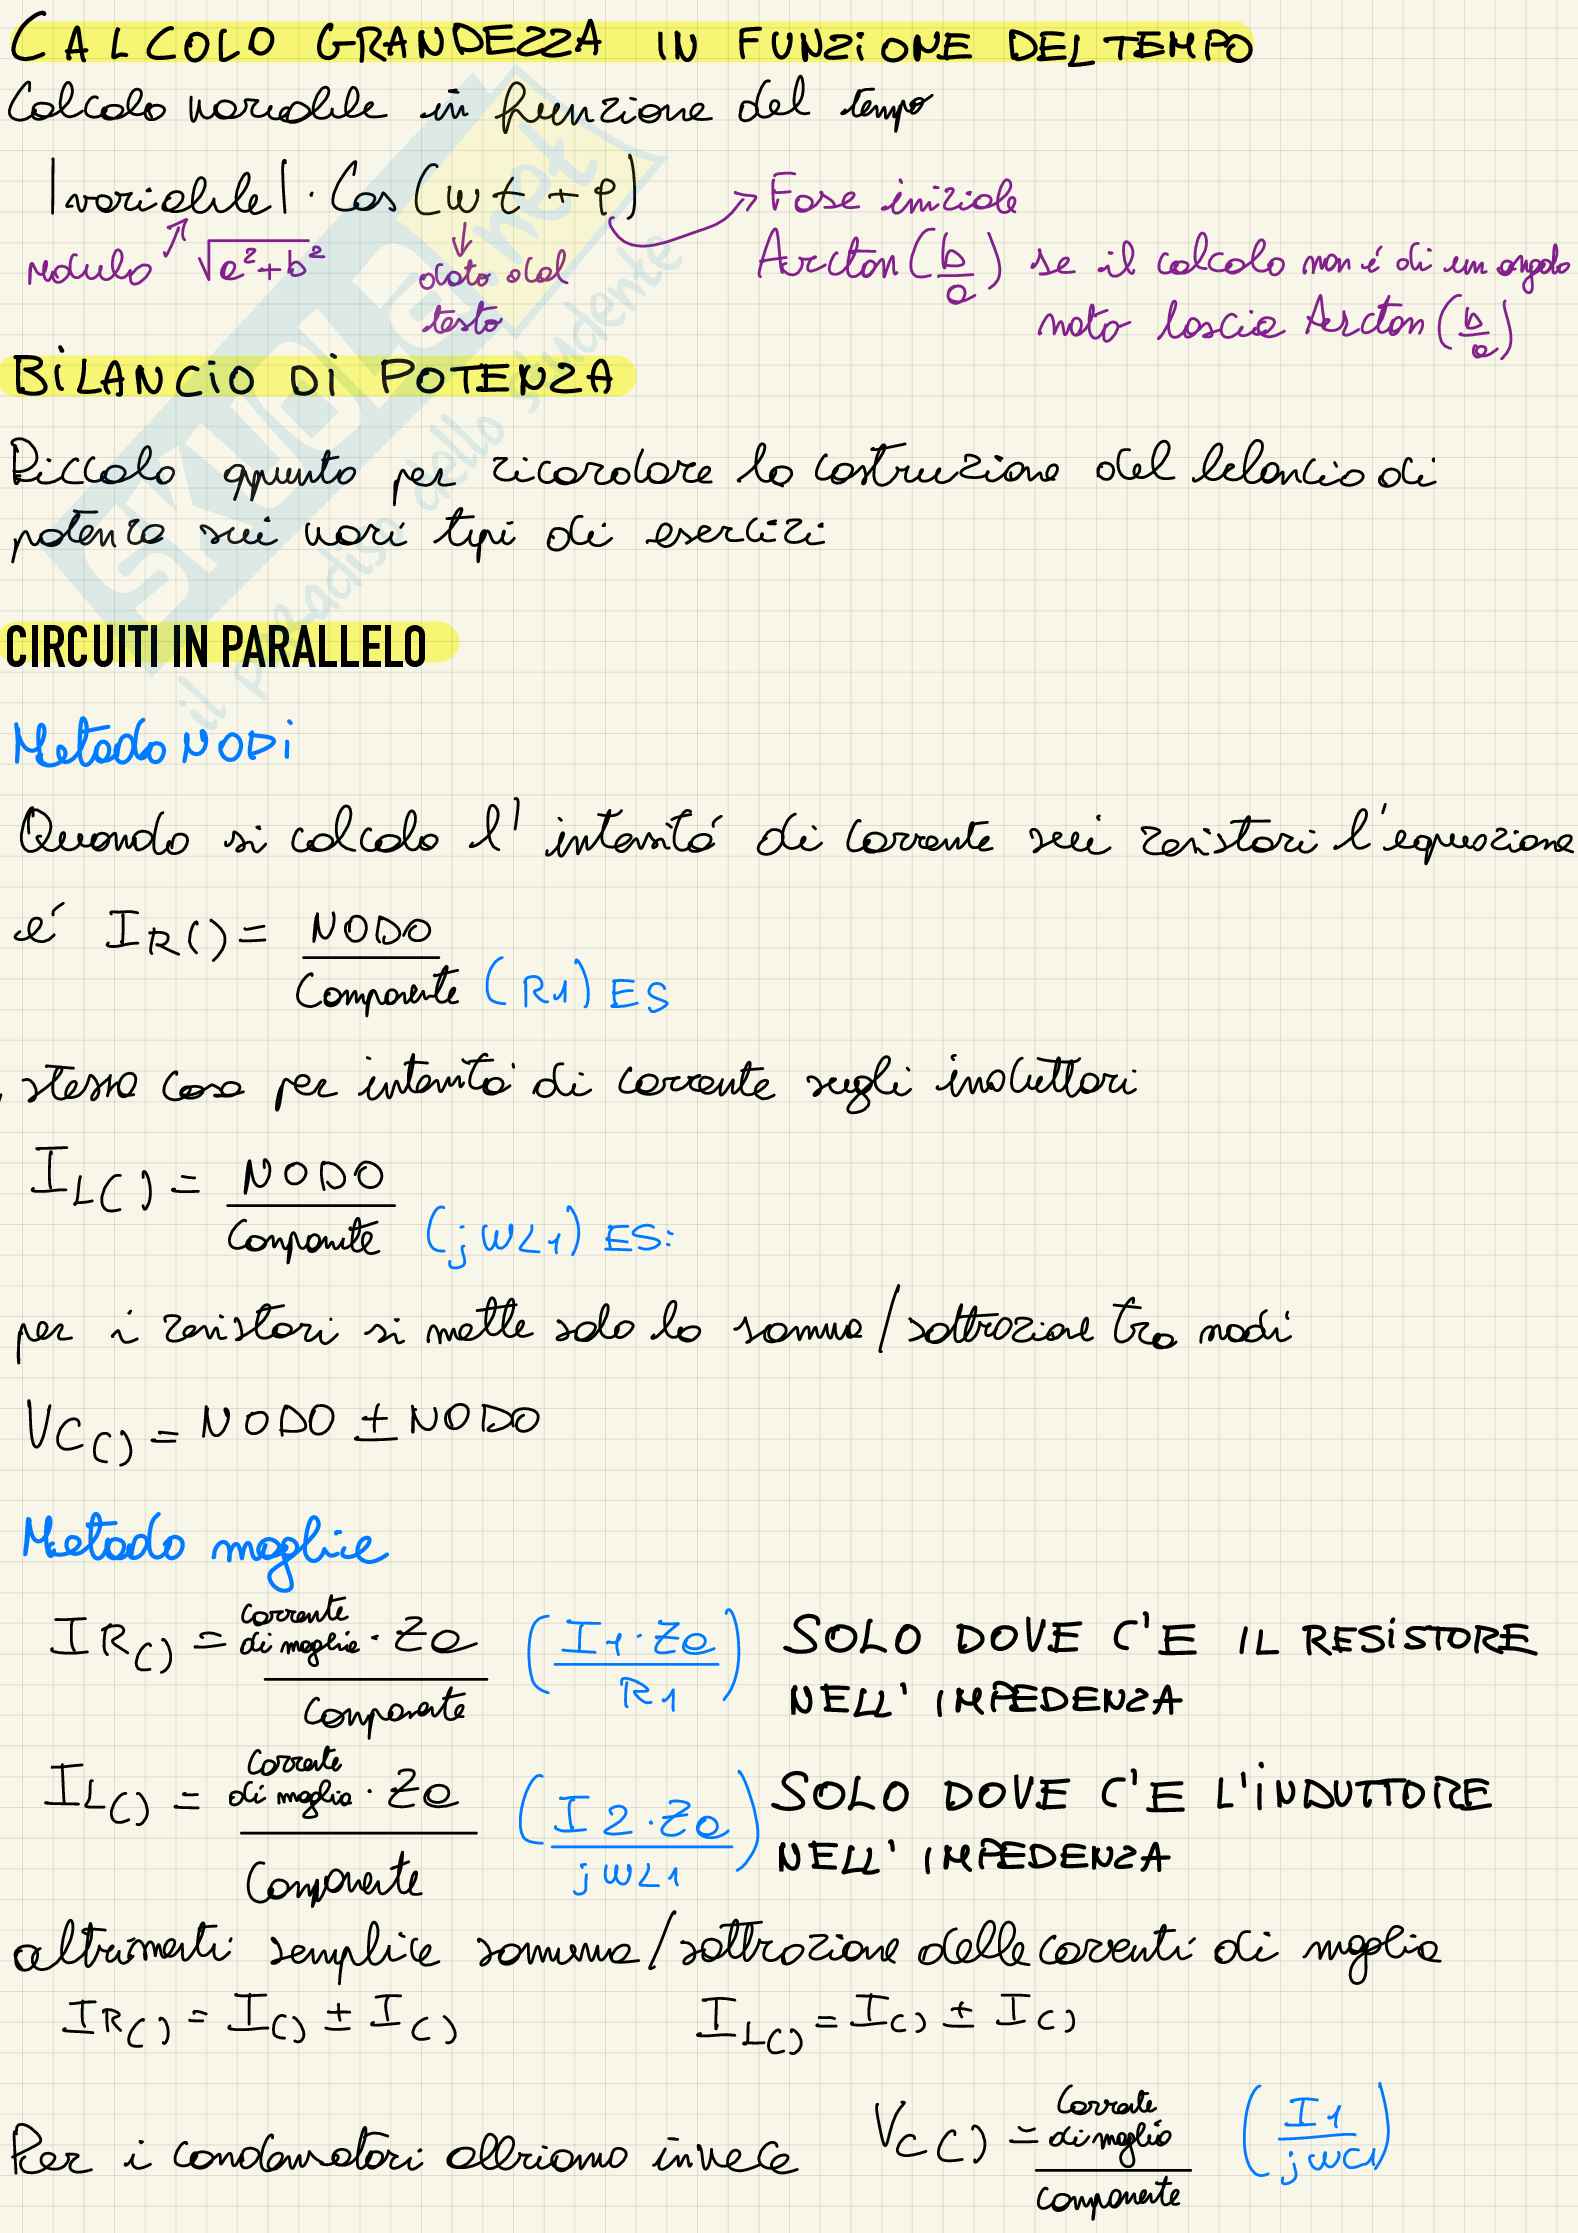 CALCOLO GRANDEZZA IN FUNZIONE DEL TEMPO
Calcolo variabile in funzione del tempo
|variabile| · Cos(wt + φ) → Fase iniziale
modulo √a²+b² dato dal testo Arctan(b/a) se il calcolo non é di un angolo
noto lascia Arctan(b/a)
BILANCIO DI POTENZA
Piccolo appunto per ricordare la costruzione del bilancio di
potenza sui vari tipi di esercizi
CIRCUITI IN PARALLELO
Metodo NODI
Quando si calcola l' intensitá di corrente sui resistori l'equazione
é IR() = NODO / Componente (R1) ES
, stessa cosa per intensitá di corrente sugli induttori
IL() = NODO / Componente (jWL1) ES:
per i resistori si mette solo la somma/sottrazione tra nodi
VC() = NODO ± NODO
Metodo maglie
IR() = corrente di maglia · Ze / Componente (I1·Ze / R1) SOLO DOVE C'E IL RESISTORE
NELL' IMPEDENZA
IL() = corrente di maglia · Ze / Componente (I2·Ze / jWL1) SOLO DOVE C'E L'INDUTTORE
NELL' IMPEDENZA
altrimenti semplice somma/sottrazione delle correnti di maglia
IR() = I() ± I() IL() = I() ± I()
Per i condensatori abbiamo invece VC() = Corrente di maglia / componente (I1 / jWC1)
SKUOLA.net
il paradiso dello studente